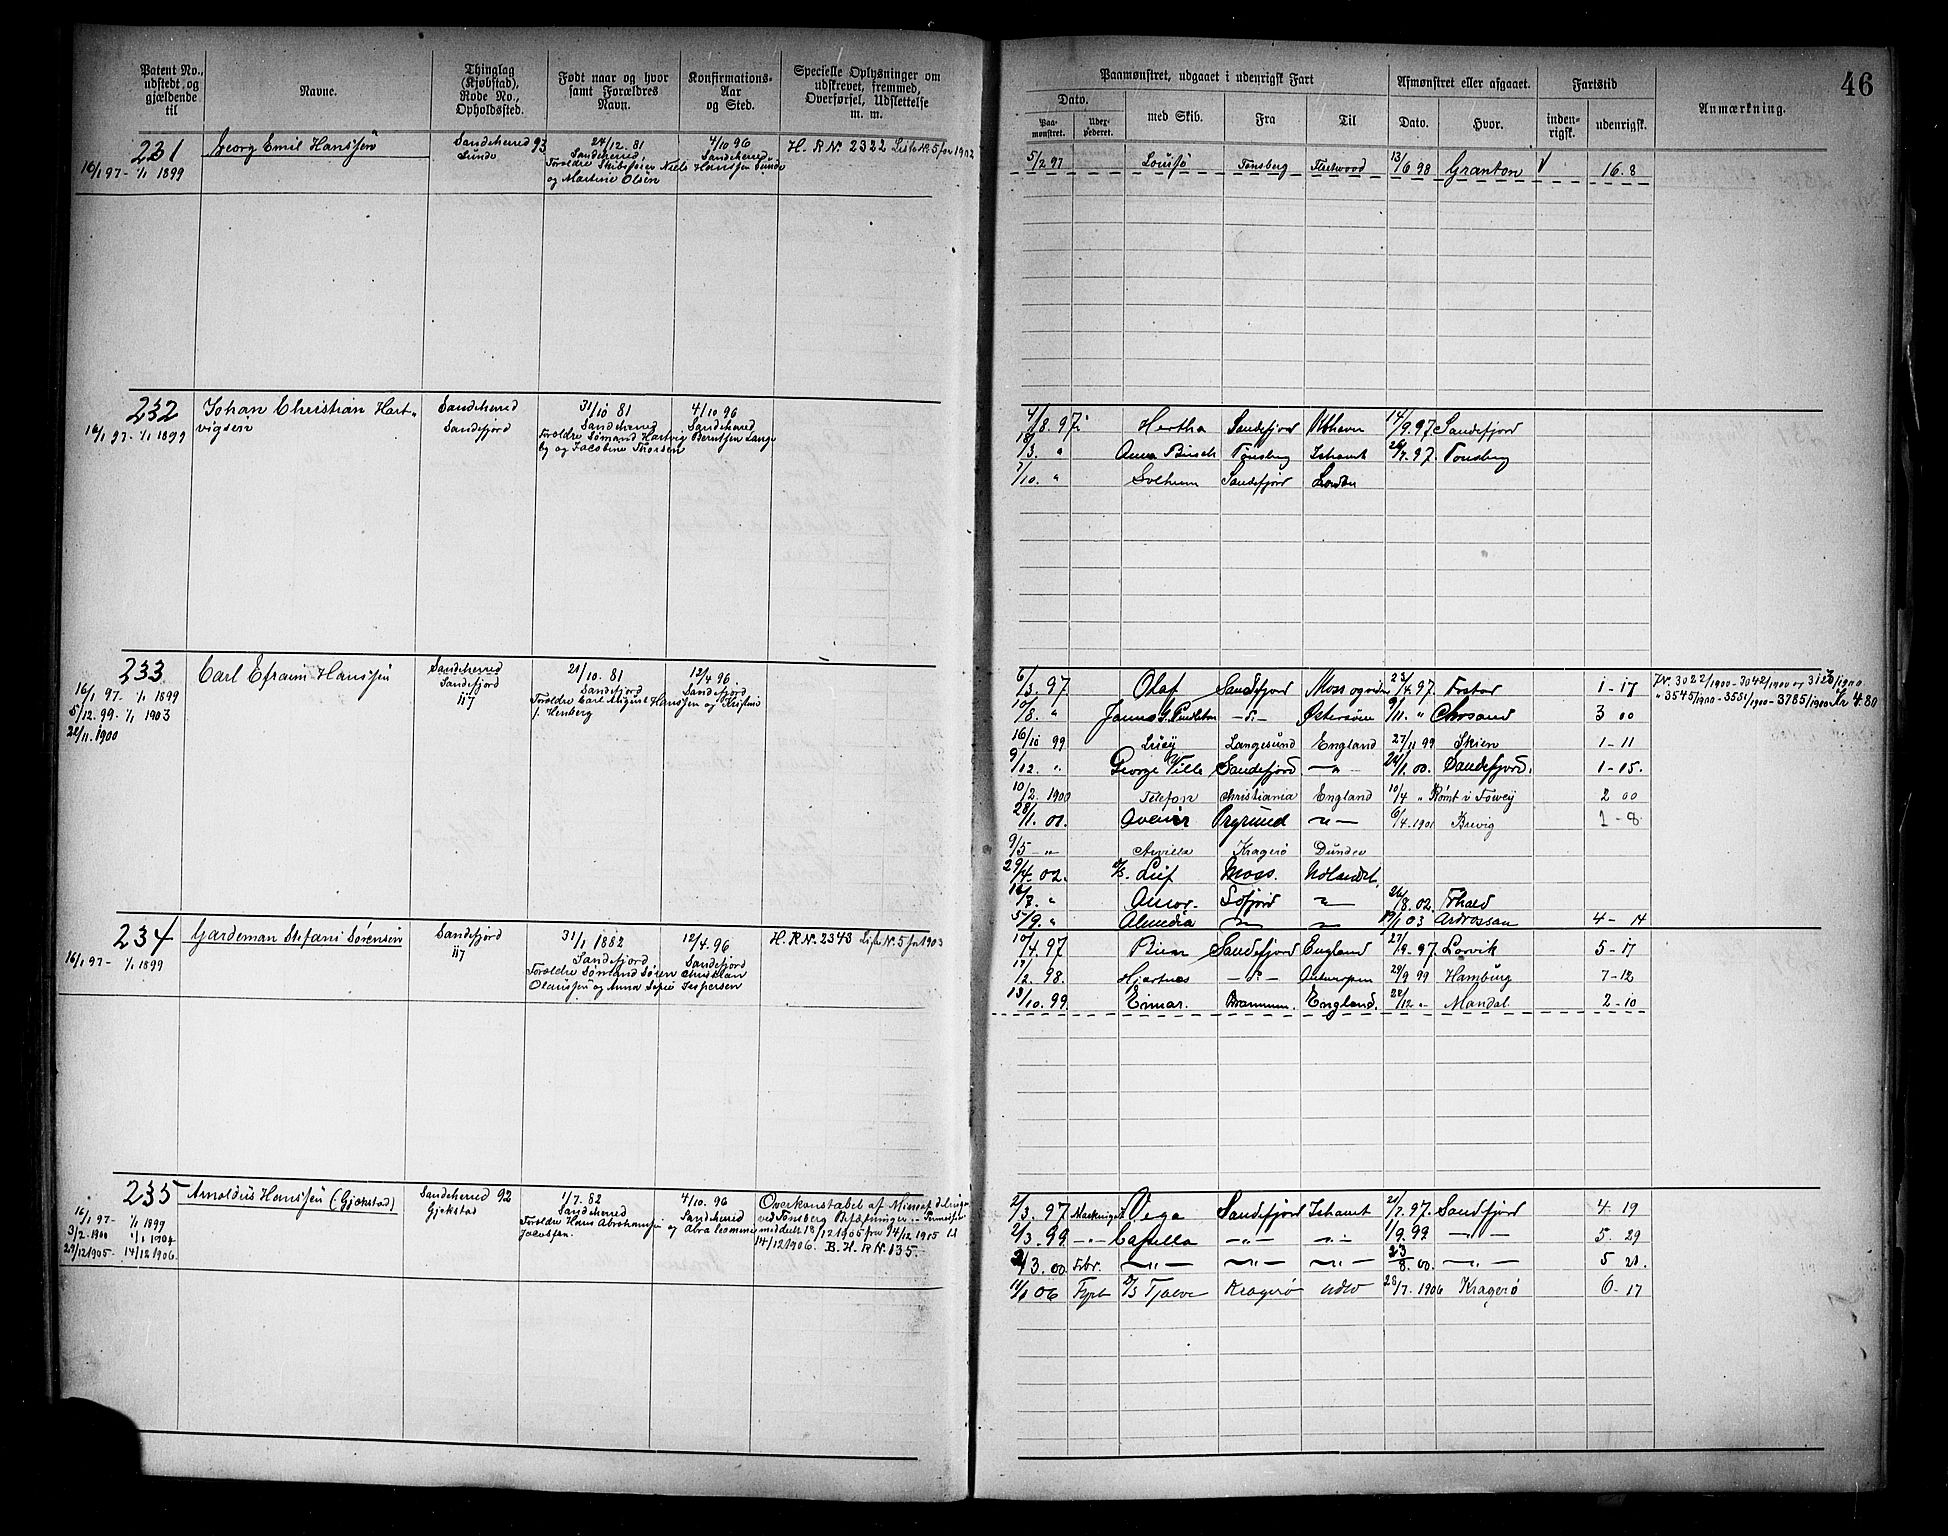 46
Patent No., udstedt og gjældende til
Navne.
Thinglag (Kjøbstad), Rode No., Opholdssted.
Født naar og hvor samt Forældres Navn.
Konfirmations-Aar og Sted.
Specielle Oplysninger om udskrevet, fremmed, Overførsel, Udslettelse m. m.
Paamønstret, udgaaet i udenrigsk Fart
Dato.
Paa-mønstret.
Udex-pederet.
med Skib.
Fra
Til
Afmønstret eller afgaaet.
Dato.
Hvor.
Fartstid
inden-rigsk.
udenrigsk.
Anmærkning.
231
16/1 97 - 1/1 1899
Georg Emil Hanssen
Sandeherred 93
Sunde
24/12. 81
Sandeherred
Forældre Skibstøier Niels Hanssen Sunde
og Martine Olsen
4/10 96
Sandeherred
H. R Nr. 2322 Liste Nr. 5 for 1902
5/2 97 Tønsberg Fleetwood 13/6 98 Granton 16. 8
232
16/1 97 - 1/1 1899
Johan Christian Hart-
vigsen
Sandeherred
Sandefjord
31/10 81
Sandeherred
Forældre Sømand Hartvig Berntsen Lange
by og Jacobine Thorsen
4/10 96
Sandeherred
4/8. 97 Hertha Sandefjord 14/9. 97 Sandefjord
/3. " Anna Tønsberg Ishavet 97. Tønsberg
7/10. " Solheim Sandefjord London
233
16/1 97. 1/1 1899
5/12. 99. 1/1 1903
22/11. 1900
Carl Efraim Hanssen
Sandeherred
Sandefjord
117
21/10. 81
Sandefjord
Forældre Carl August Hanssen og Kristine
f. Henberg
12/4 96.
Sandefjord
6/3. 97 Olaf Sandefjord Moss og viden 23/4. 97. 1 - 17
Jv. 3022/1900 - 3042/1900 og 3123/1900
" 3545/1900 - 3551/1900 - 3785/1900 Kr 4.80
10/8. " James G. Pendleton Østersøen 9/11. " Chrsand 3 00
16/10 99 Langesund England 27/11 99 Skien 1 - 11
9/12. " George Ville Sandefjord 24/1. 00. Sandefjord. 1 - 15.
10/2. 1900 Telefon Christiania England 10/4 " Rømt i Fowey 2 00
28/1. 01. Prsgrund 6/4. 1901 Brevig 1 - 8
9/5 - " - Kragerø
29/4 - 02. Leif Moss. Udlandet.
/7. " 26/8. 02.
5/9. " Almedia 19/1 03 Ardrossan 4 - 14
234
16/1 97 - 1/1 1899
Gardeman Stefani Sørensen
Sandefjord
117
31/1 1882
Sandefjord
Forældre Sømand Søren Christian
Olaussen og Anna Sofie Jespersen
12/4. 96
Sandefjord
H. R Nr. 2343 Liste Nr. 5 for 1903
10/4. 97 Sandefjord England 27/9. 97. Larvik 5 - 17
/2. 98. Hjertnes Antwerpen 29/9 99 Hamburg 7 - 12
13/10. 99 Einar. England. 28/12 " Mandal 2 - 10
235
16/1 97 - 1/1 1899
3/2. 1900 1/1 1904
29/12 1905 - 14/12 1906.
Arnoldus Hanssen (Gjekstad)
Sandeherred 92
Gjekstad
1/7. 82
Sandeherred
Forældre Hans Abrahamsen
Jacobsen.
4/10. 96
Sandeherred
Overkonstabel af Mineafdelingen
ved Tønsberg Befæstninger
meddelt 18/12 1906 fra 14/12 1905 til
14/12 1906. B. H. R Nr. 135.
2/3. 97 Vega Sandefjord Ishavet 21/7. 97. Sandfjord 4. 19
2/3. 99 Capella 1/9. 99 5. 29
2/3. 00 Fyrbr. 23/8. 00. 5 21.
11/1 06 Fyrb. D/S Tjalve Kragerø Udlv 28/7. 1906 Kragerø 6 - 17